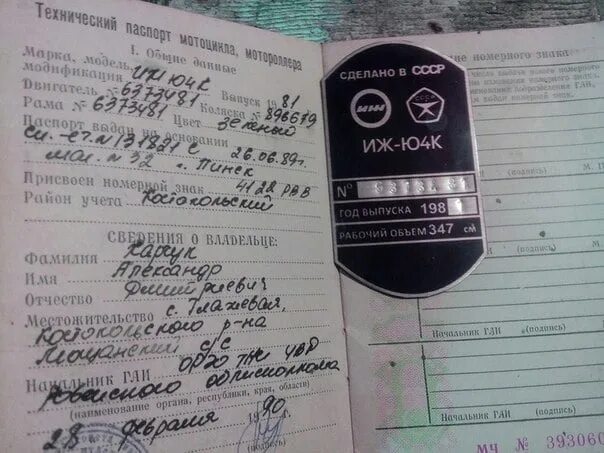 Технический паспорт мотоцикла, мотороллера
I. Общие данные
Марка, модель,
модификация ИЖ Ю4К
Двигатель № 6373481 Выпуск 1981
Рама № 6373481 Коляска № 896679
Цвет зеленый
Паспорт выдан на основании
сп.-сч. N 131821 с 26.06.89г.
маг. N 32 г. Пинск
Присвоен номерной знак 4122 РВВ
Район учета Костопольский
СВЕДЕНИЯ О ВЛАДЕЛЬЦЕ:
Фамилия
Имя Александр
Отчество Дмитриевич
Местожительство с.
Костопольского р-на
с/с
Начальник ГАИ УВД
Ровенского облисполкома
(наименование органа, республики, края, области)
28 февраля 1990 г.
(подпись)
СДЕЛАНО В СССР
ИЖ-Ю4К
N°
ГОД ВЫПУСКА 1981
РАБОЧИЙ ОБЪЕМ 347 см
номерного знака
(подпись)
(подпись)
Начальник ГАИ (подпись)
Начальник ГАИ (подпись)
МЧ № 393060